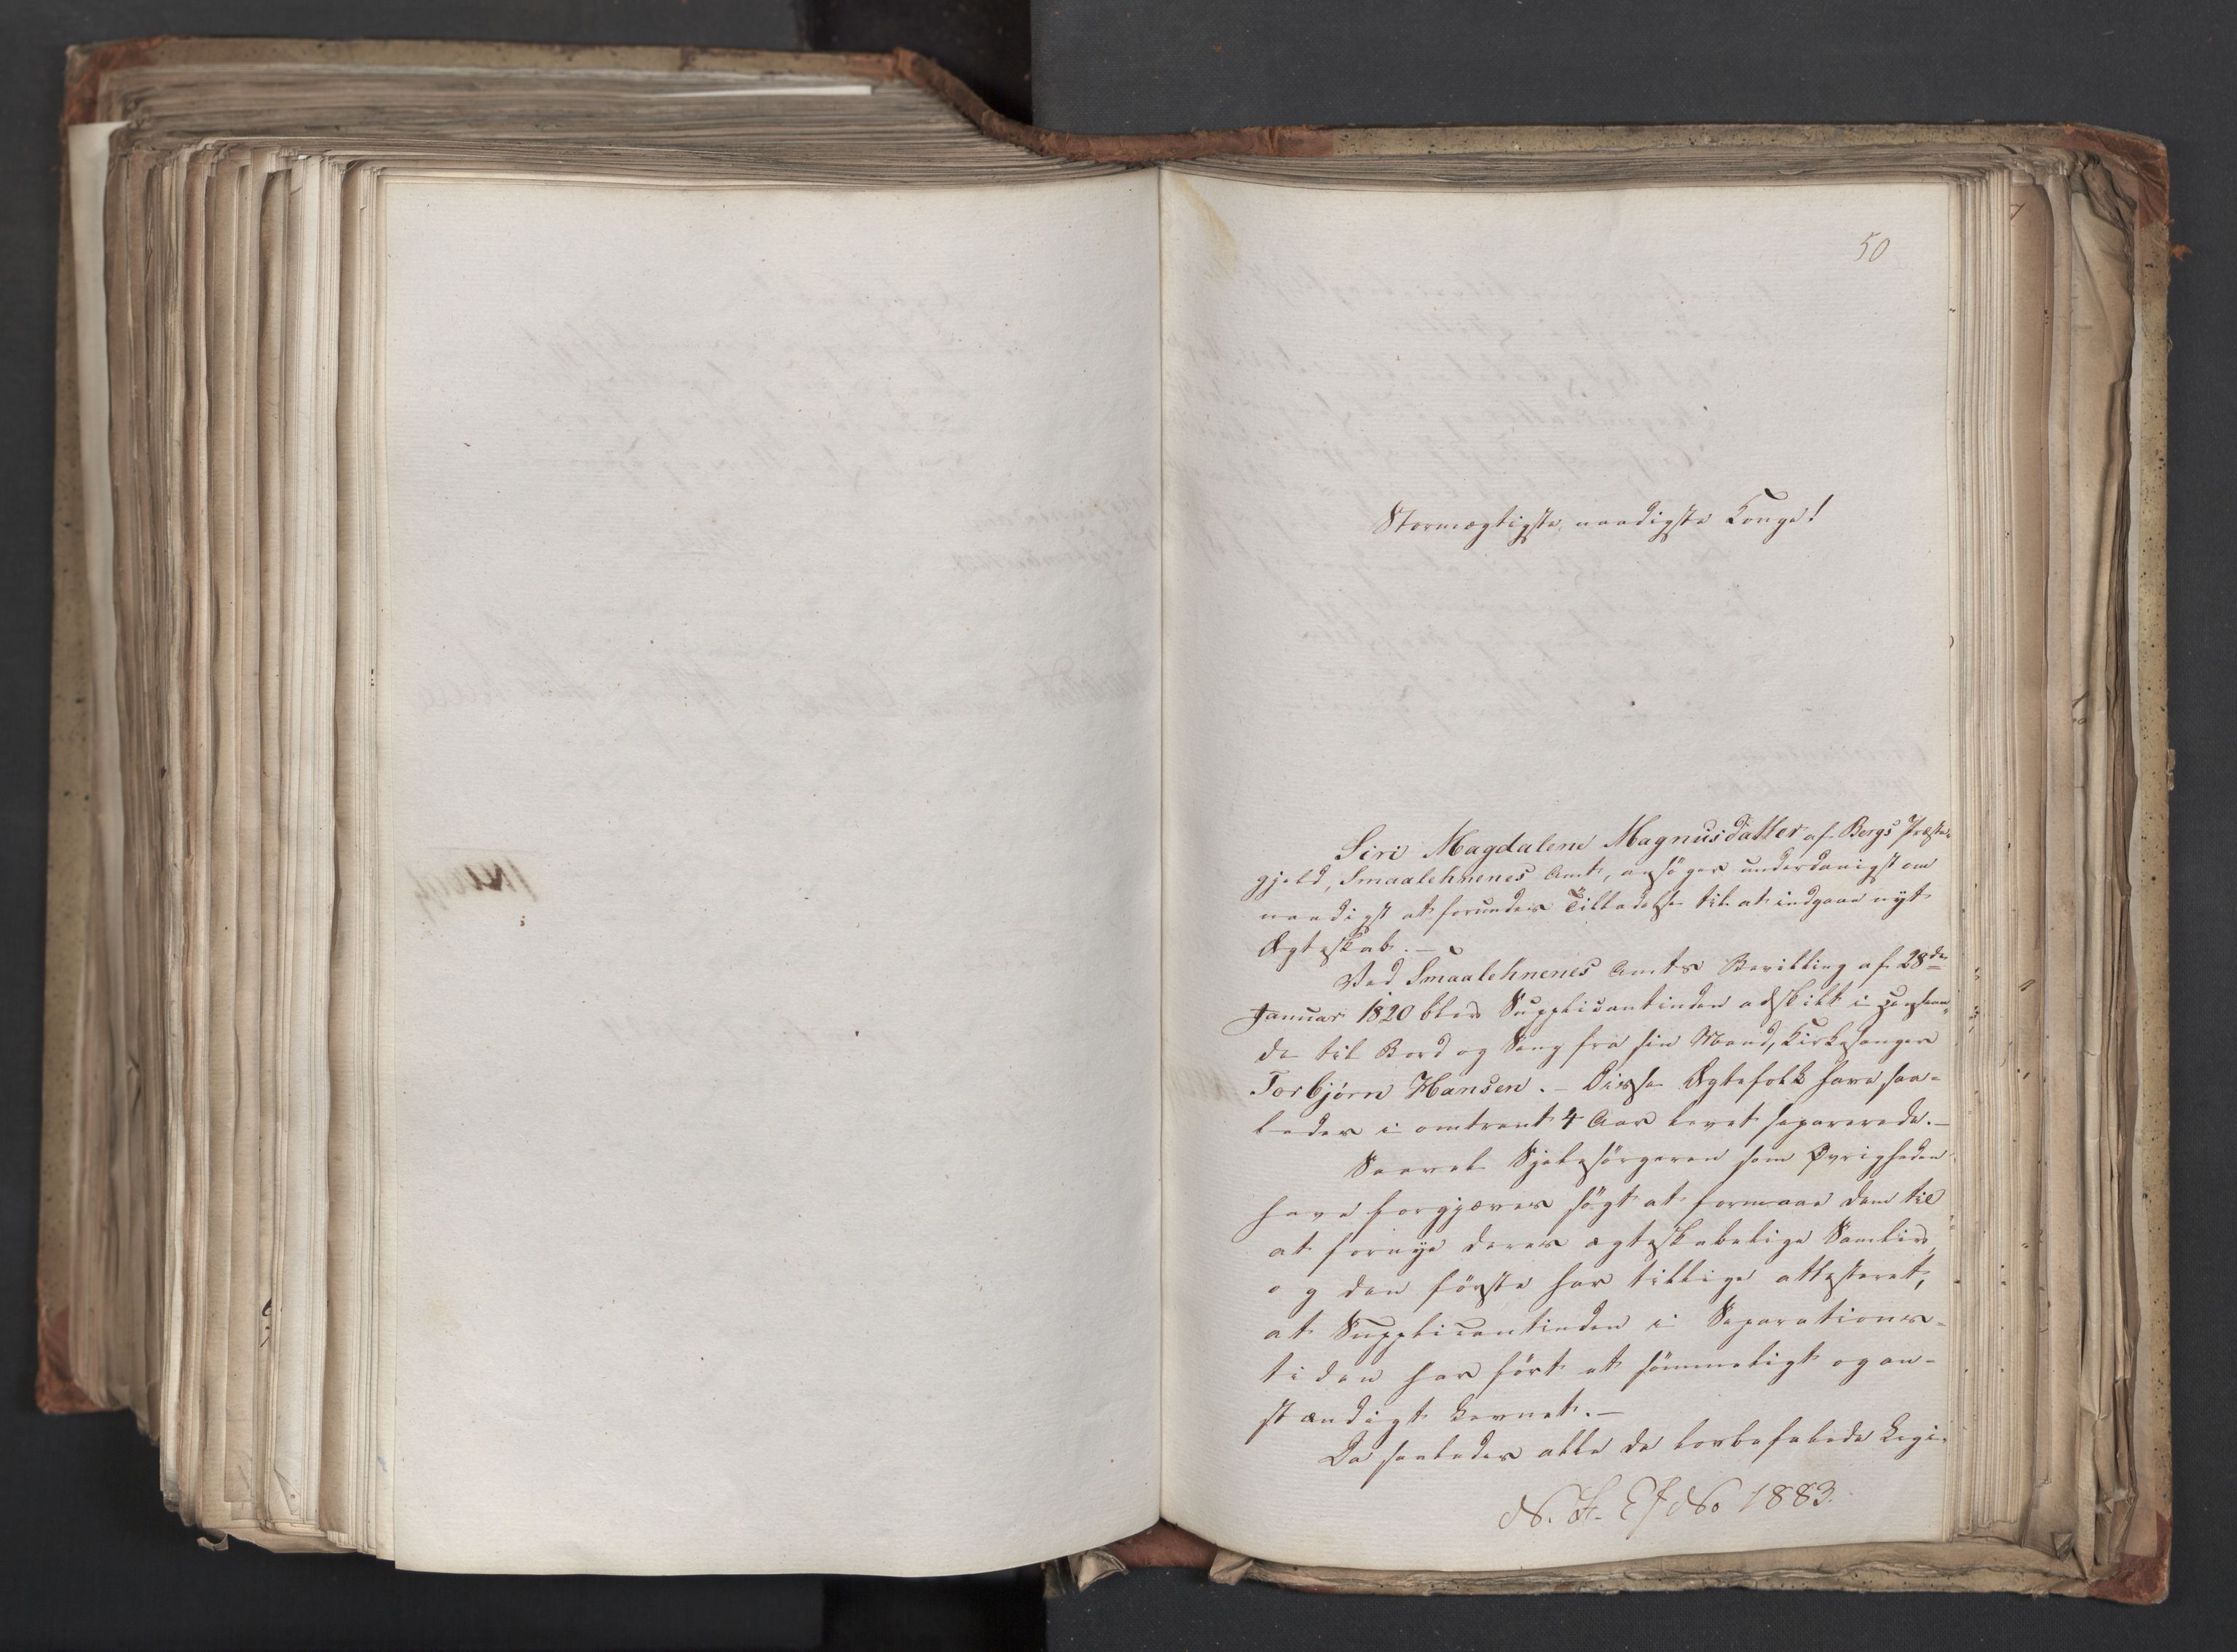 50
Stormægtigste, naadigste Konge!
Siri Magdalene Magnusdatter af Bergs Præste-
gjeld, Smaalehnenes Amt, ansøger underdanigst om
naadigst at forundes Tilladelse til at indgaae nyt
Ægteskab.—
Ved Smaalehnenes Amts Bevilling af 28de
Januar 1820 blev Supplicantinden adskilt i Henseen-
de til Bord og Seng fra sin Mand, Kirkesanger
Torbjørn Hansen.— Disse Ægtefolk have saa-
ledes i omtrent 4 Aar levet separerede.—
Saavel Sjelesørgeren som Øvrigheden
have forgjæves søgt at formaae dem til
at fornye deres ægteskabelige Samliv,
og den første har tillige attesteret,
at Supplicantinden i Separations-
tiden har ført et sømmeligt og an-
stændigt Levnet.—
Da saaledes alle de lovbefalede Reqvi-
No 1883.